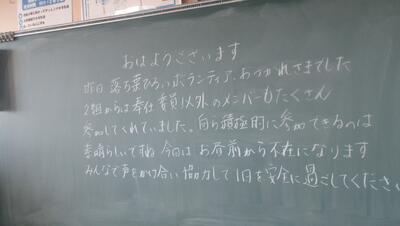 おはようございます
昨日 落ち葉ひろいボランティア、おつかれさまでした
2組からは奉仕委員以外のメンバーもたくさん
参加してくれていました。自ら積極的に参加できるのは
素晴らしいですね 今日は お昼前から不在になります
みんなで声をかけ合い 協力して 1日を安全に過ごしてくださ